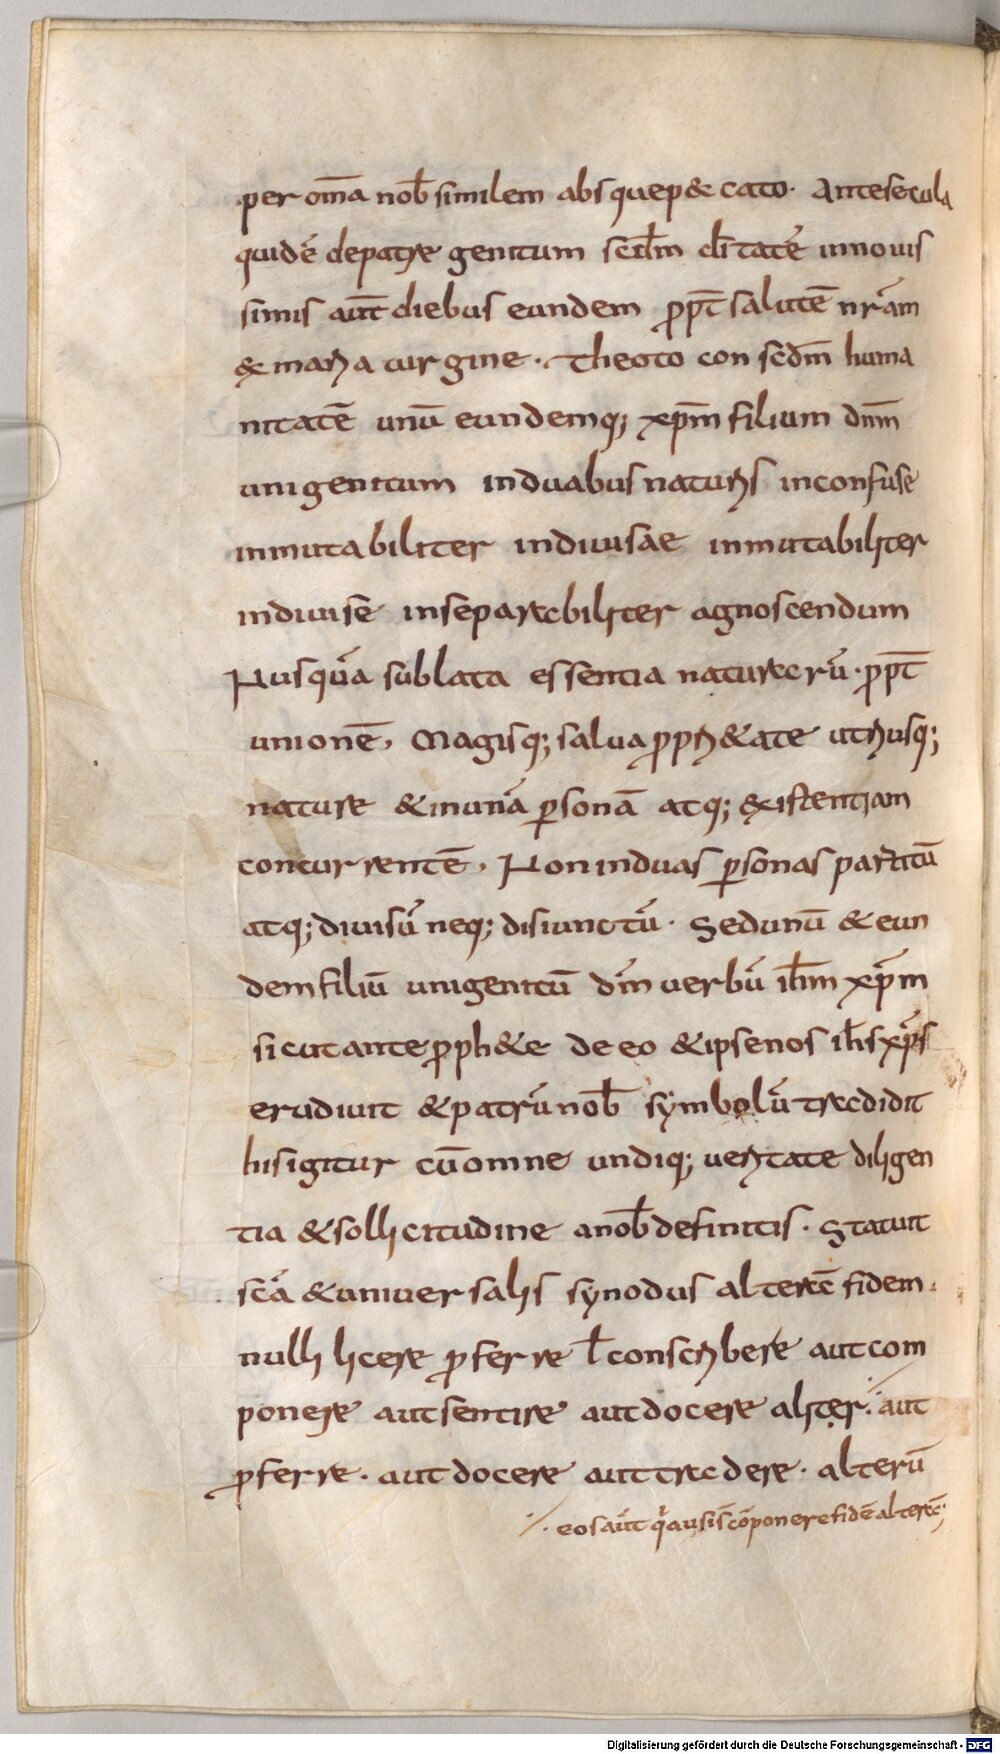 per om̄a nob̄ similem absquep&cato· Antesecula
quidē depatre genitum scd̄m dītatē innouis
simis aut̄ diebus eundem ꝓpt̄ salutē nr̄am
& maria uirgine· Theoto con scd̄m huma
nitatē unū eundemq; xp̄m filium dnm̄
unigenitum induabus naturis inconfuse
inmutabiliter indiuisae inmutabiliter
indiuise inseparabiliter agnoscendum
Nusquā sublata essentia naturarū· ꝓpt̄
unionē, Magisq; salua ꝓpri&ate utriusq;
nature & inunā ꝑsonā atq; existentiam
concurrentē, Non induas ꝑsonas partitū
atq; diuisū neq; disiunctū· Sedunū & eun
demfiliū unigenitū dm̄ uerbū ih̄m xp̄m
sicut ante ꝓph&e de eo & ipsenos ih̄s xp̄s
erudiuit & patrū nob̄ symbolū tradidit
hisigitur cūomne undiq; ueritate diligen
tia & sollicitudine anob̄ definitis· Statuit
sc̄a & uniuersalis synodus alterā fidem·
nulli licere ꝓferre ł conscribere aut com
ponere aut sentire aut docere aliter·/· aut
ꝓferre· aut docere aut tradere· alterū
·/· eos aūt q̄ ausi s̄ cōponere fidē alterā;
Digitalisierung gefördert durch die Deutsche Forschungsgemeinschaft - DFG